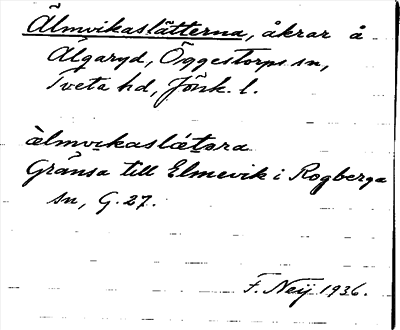 Älmvikaslätterna, åkrar å
Älgaryd, Öggestorps sn,
Tveta hd, Jönk. l.
àlmvikaslǽtəra
Gränsa till Elmevik i Rogberga
sn, G. 27.
F. Neij 1936.